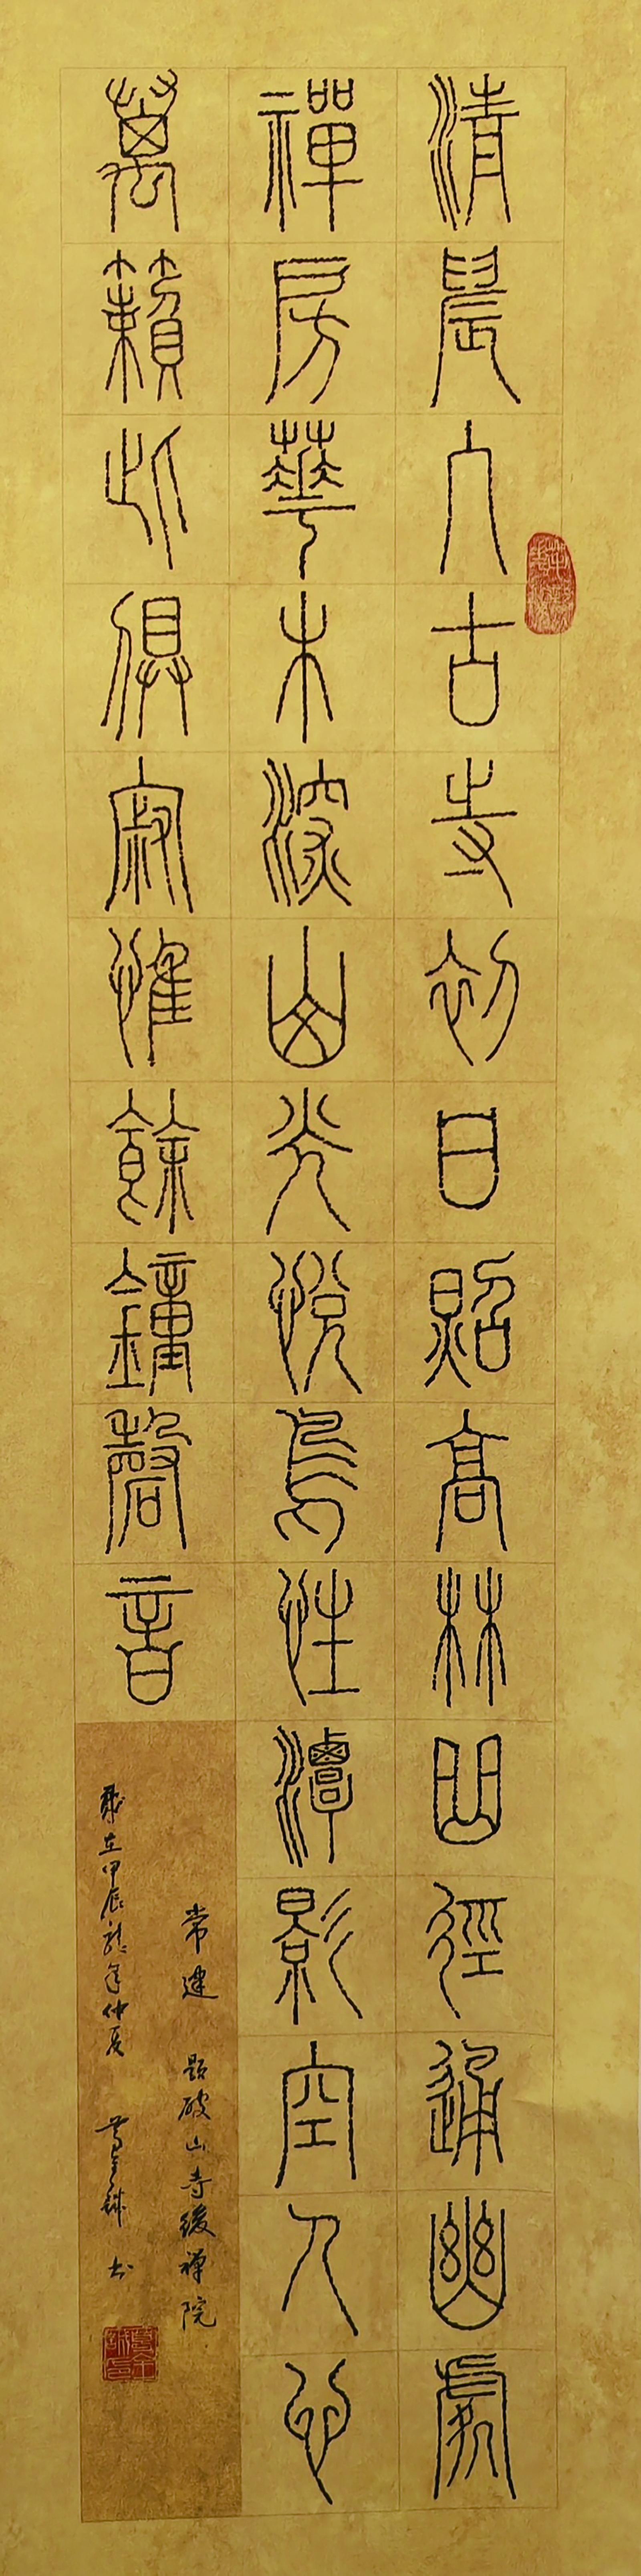 清晨入古寺初日照高林曲徑通幽處
禪房華木深山光悅鳥性潭影空人心
萬籟此俱寂惟餘鐘磬音
常建 題破山寺後禪院
歲在甲辰龍年仲夏 书